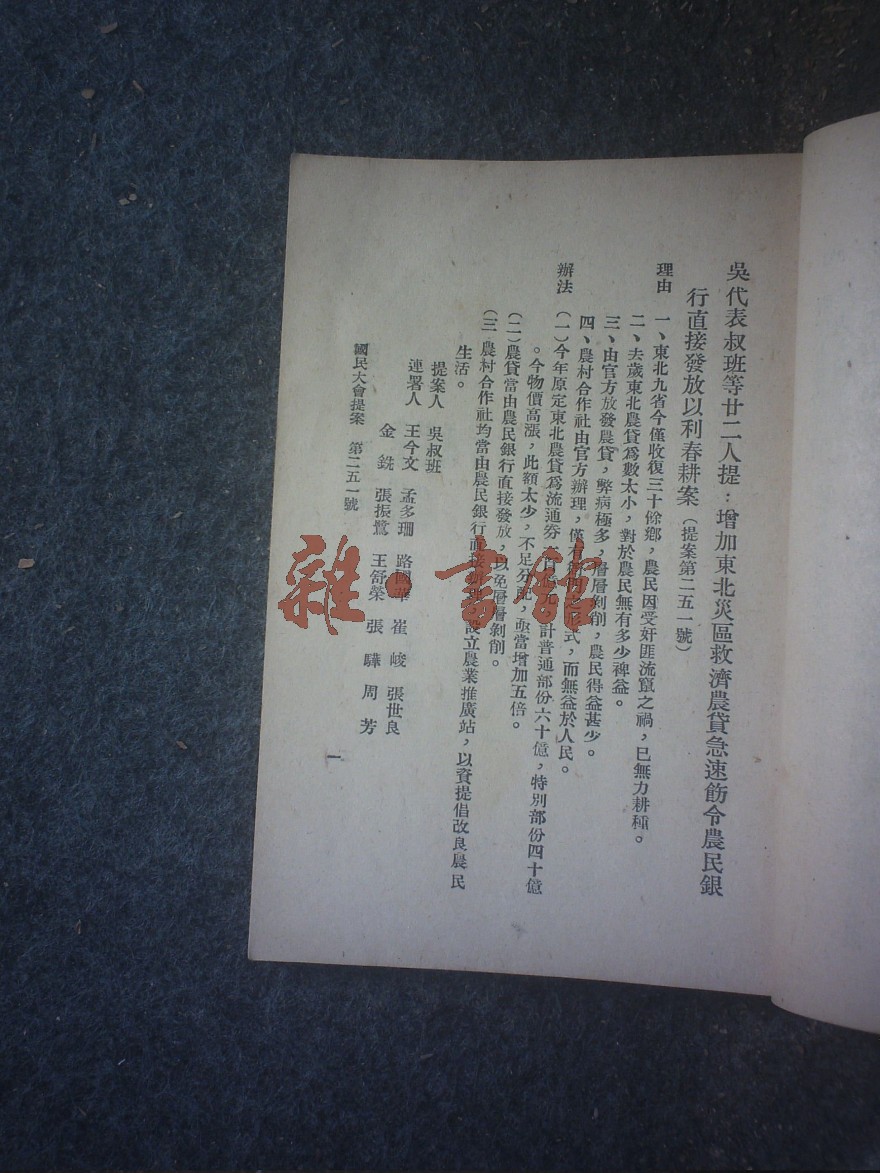 吳代表叔班等廿二人提：增加東北災區救濟農貸急速飭令農民銀
行直接發放以利春耕案（提案第二五一號）
理由　一、東北九省今僅收復三十餘鄉，農民因受奸匪流竄之禍，已無力耕種。
二、去歲東北農貸爲數太小，對於農民無有多少裨益。
三、由官方放發農貸，弊病極多，層層剝削，農民得益甚少。
四、農村合作社由官方辦理，僅有形式，而無益於人民。
辦法　（一）今年原定東北農貸爲流通券 計普通部份六十億，特別部份四十億
。今物價高漲，此額太少，不足分配，亟當增加五倍。
（二）農貸當由農民銀行直接發放，以免層層剝削。
（三）農村合作社均當由農民銀行直接 設立農業推廣站，以資提倡改良農民
生活。
提案人　吳叔班
連署人　王今文　孟多珊　路國華　崔峻　張世良
金銑　張振鷺　王舒榮　張驊　周芳
國民大會提案　第二五一號
一
雜書館